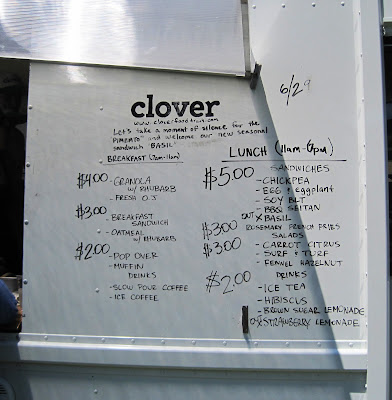 6/29
clover
www.cloverfoodtruck.com
Let's take a moment of silence for the
PIMENTO and welcome our new seasonal
sandwich "BASIL"
BREAKFAST (7am-11am)
$4.00 - GRANOLA
W/ RHUBARB
- FRESH O.J
$3.00 - BREAKFAST
SANDWICH
- OATMEAL
W/ RHUBARB
$2.00 - POP OVER
- MUFFIN
DRINKS
- SLOW POUR COFFEE
- ICE COFFEE
LUNCH (11am-6pm)
$5.00 SANDWICHES
- CHICKPEA
- EGG & eggplant
- SOY BLT
- BBQ SEITAN
OUT X BASIL
$3.00 ROSEMARY FRENCH FRIES
SALADS
$3.00 - CARROT CITRUS
- SURF & TURF
- FENNEL HAZELNUT
$2.00 DRINKS
- ICE TEA
- HIBISCUS
- BROWN SUGAR LEMONADE
STRAWBERRY LEMONADE